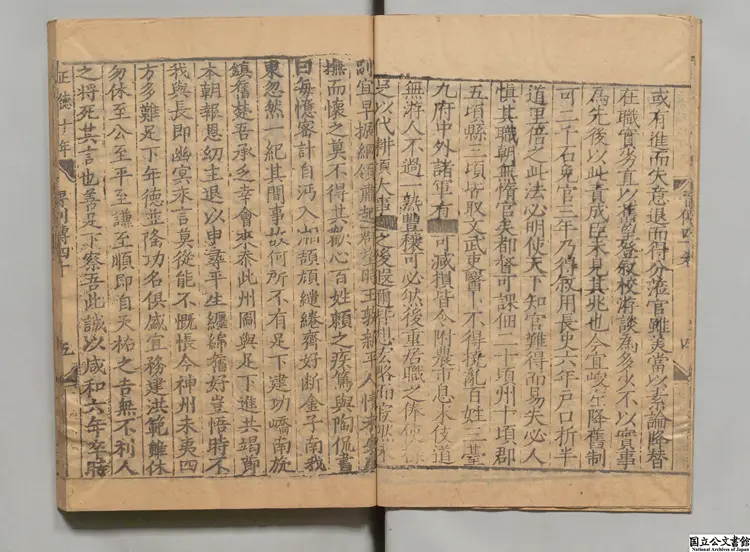 或有進而失意退而得分蒞官雖美當以素論降替
在職實劣直以舊望登敘校游談為多少不以實事
為先後以此責成臣未見其兆也今宜峻左降舊制
可二千石免官三年乃得叙用長史六年戶口折半
道里倍之此法必明使天下知官難得而易失必人
慎其職朝無惰官矣都督可課佃二十頃州十頃郡
五頃縣三頃皆取文武吏醫卜不得撓亂百姓三臺
九府中外諸軍有可減損皆令附農市息末伎道
無游人不過一熟豐穰可必然後重居職之俸使祿
足以代耕頃大事之後遐邇皆想宏略而寂然未
副宜早振綱領肅起羣望時王敦新平人情未安詹
撫而懷之莫不得其歡心百姓賴之疾篤與陶侃書
曰每憶密計自沔入湘頡頏繾綣齊好斷金子南我
東忽然一紀其間事故何所不有足下建功嶠南旋
鎮舊楚吾承乏幸會來忝此州圖與足下進共竭節
本朝報恩幼主退以申尋平生纏綿舊好豈悟時不
我與長即幽冥永言莫從能不慨悵今神州未夷四
方多難足下年德並隆功名俱盛宜務建洪範雖休
勿休至公至平至謙至順即自天祐之吉無不利人
之將死其言也善足下察吾此誠以咸和六年卒時
正德十年 晉列傳四十 五
国立公文書館
National Archives of Japan